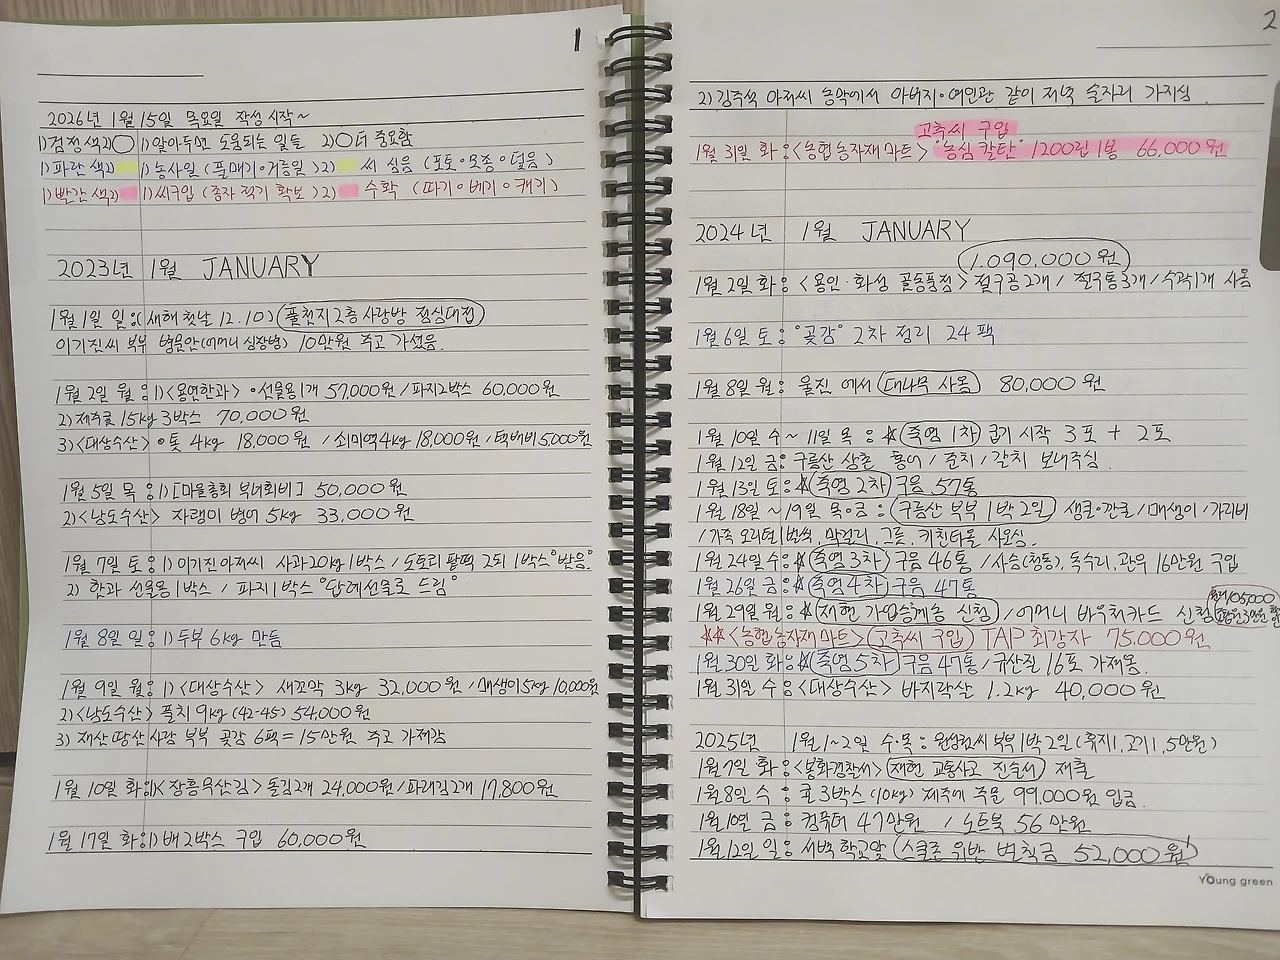 1
2026년 1월 15일 목요일 작성 시작~
1)검정색2)○ 1)알아두면 도움되는 일들 2)○더 중요함
1)파란색2) 1)농사일 (풀매기∘거름일) 2) 씨 심음 (포토∘모종∘덮음)
1)빨간색2) 1)씨구입 (종자 적기 확보) 2) 수확 (따기∘베기∘캐기)
2023년 1월 JANUARY
1월 1일 일:(새해 첫날 12.10) (풀천지 2층 사랑방 점심대접)
이기진씨 부부 병문안(어머니 심장병) 10만원 주고 가셨음.
1월 2일 월:1)<용연한과>∘선물용1개 57,000원/파지2박스 60,000원
2)제주귤 15kg 3박스 70,000원
3)<대상수산>∘톳 4kg 18,000원 /쇠미역4kg 18,000원 /택배비 5,000원
1월 5일 목:1)[마을총회 부녀회비] 50,000원
2)<남도수산> 자랭이 병어 5kg 33,000원
1월 7일 토:1)이기진아저씨 사과20kg 1박스/도토리 팥떡 2되 1박스"받음"
2) 한과 선물용 1박스 / 파지 1박스 "답례선물로 드림"
1월 8일 일:1)두부 6kg 만듬
1월 9일 월:1)<대상수산> 새꼬막 3kg 32,000원 /매생이5kg 10,000원
2)<남도수산> 풀치 9kg (42-45) 54,000원
3) 재산 땅산사랑 부부 곶감 6팩=15만원 주고 가져감
1월 10일 화:1)<장흥무산김> 돌김2개 24,000원/파래김2개 17,800원
1월 17일 화:1)배 2박스 구입 60,000원
2
2)김주석 아저씨 농막에서 아버지∘여인관 같이 저녁 술자리 가지심.
고추씨 구입
1월 31일 화:<농협 농자재 마트> 농심 칼탄 1200립 1봉 66,000원
2024년 1월 JANUARY
1,090,000원
1월 2일 화:<용인·화성 골동품점> 절구공 2개/ 절구통3개/수곽1개 사옴
1월 6일 토:"곶감" 2차 정리 24팩
1월 8일 월: 울진에서 (대나무 사옴) 80,000원
1월 10일 수~11일 목:☆(죽염 1차) 굽기 시작 3포 + 2포
1월 12일 금:구름산 삼촌 홍어/준치/갈치 보내주심.
1월 13일 토:☆(죽염 2차) 구음 57통
1월 18일~19일 목∘금:(구름산 부부 1박 2일) 생굴∘간굴/매생이/가리비
/가죽 오리털 1벌씩, 막걸리, 그릇, 키친타올 사오심.
1월 24일 수:☆(죽염 3차) 구음 46통 /사슴(청동), 독수리, 관우 16만원 구입
1월 26일 금:☆(죽염 4차) 구음 47통
1월 29일 월:☆(재현 가업승계농 신청)/어머니 바우처카드 신청
☆☆<농협 농자재 마트>(고추씨 구입) TAP 최강자 75,000원
1월 30일 화:☆(죽염 5차) 구음 47통/규산질 16포 가져옴.
1월 31일 수:<대상수산> 바지락살 1.2kg 40,000원
2025년 1월 1~2일 수·목: 부부 1박 2일 (휴지1, 고기1, 5만원)
1월 7일 화:<봉화경찰서>(재현 교통사고 진술서) 제출
1월 8일 수:귤 3박스(10kg) 제주에 주문 99,000원 입금.
1월 10일 금:컴퓨터 47만원 / 노트북 56만원
1월 12일 일:서벽 학교앞 (스쿨존 위반 범칙금 52,000원)
Young green